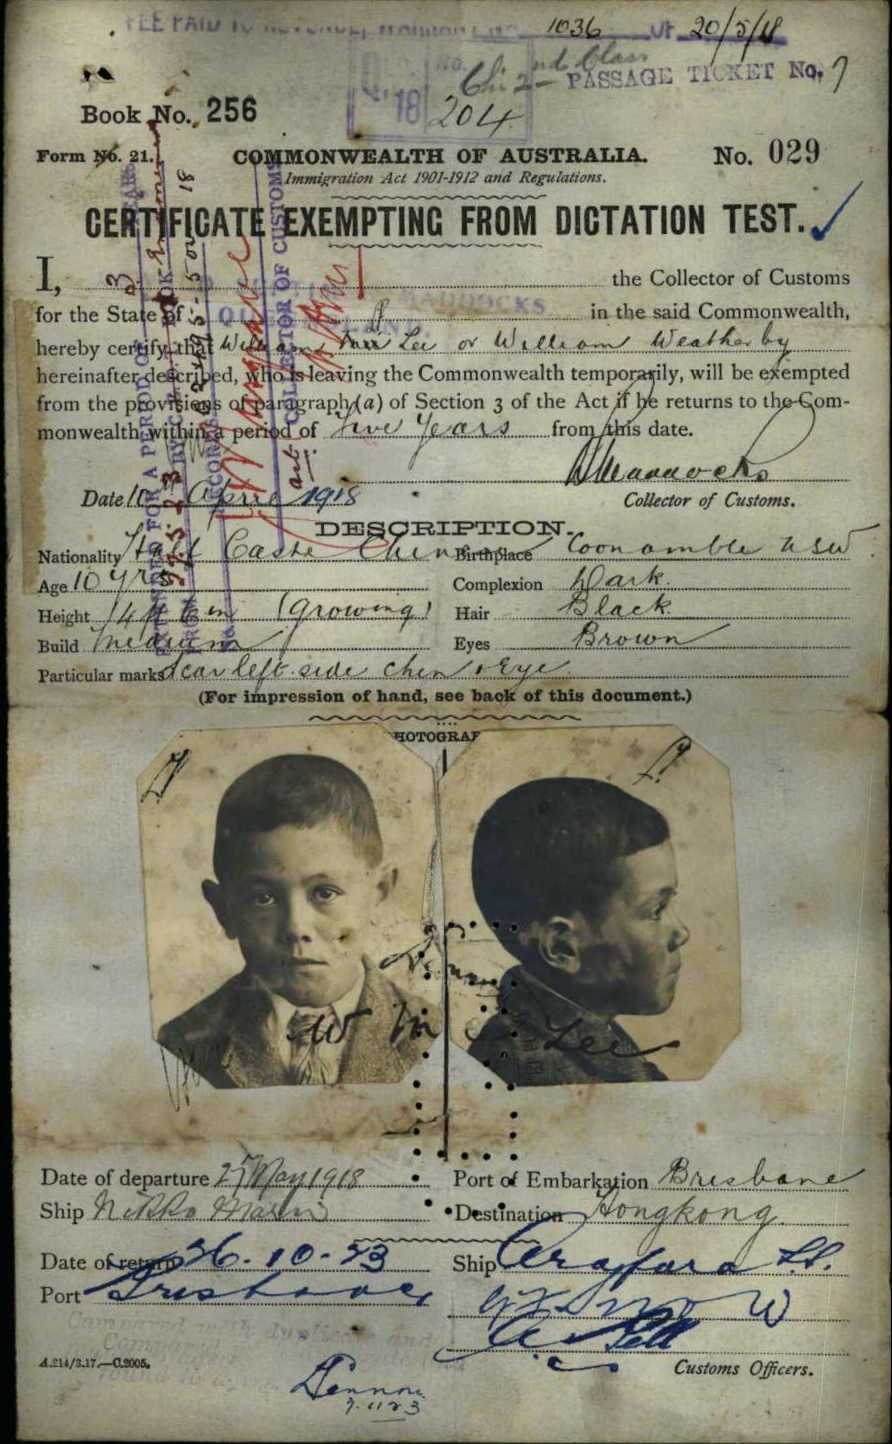 FEE PAID TO REVENUE, 1036 OF 20/5/18
2nd Class
PASSAGE TICKET No. 7
18
204
Book No. 256
Form No. 21.
COMMONWEALTH OF AUSTRALIA.
No. 029
Immigration Act 1901-1912 and Regulations.
CERTIFICATE EXEMPTING FROM DICTATION TEST.
I, MADDOCKS the Collector of Customs
for the State of QUEENSLAND. in the said Commonwealth,
hereby certify that William Lee or William Weatherby
hereinafter described, who is leaving the Commonwealth temporarily, will be exempted
from the provisions of paragraph (a) of Section 3 of the Act if he returns to the Com-
monwealth within a period of Five Years from this date.
Maddocks
Date 10th April 1918
Collector of Customs.
COLLECTOR OF CUSTOMS
FOR A PERIOD OF 3 YEARS
DESCRIPTION.
Nationality Half Caste Chinese
Birthplace Coonamble NSW
Age 10 yrs
Complexion Dark
Height 4 ft 6 in (growing)
Hair Black
Build Medium
Eyes Brown
Particular marks Scar left side chin & Eye
(For impression of hand, see back of this document.)
PHOTOGRAPH
W M Lee
Date of departure 27 May 1918
Port of Embarkation Brisbane
Ship Nikko Maru
Destination Hongkong
Date of return 26-10-23
Ship Arafura S.S.
Port Brisbane
A.214/3.17.—C.2005.
Customs Officers.
Lennon
7.11.23